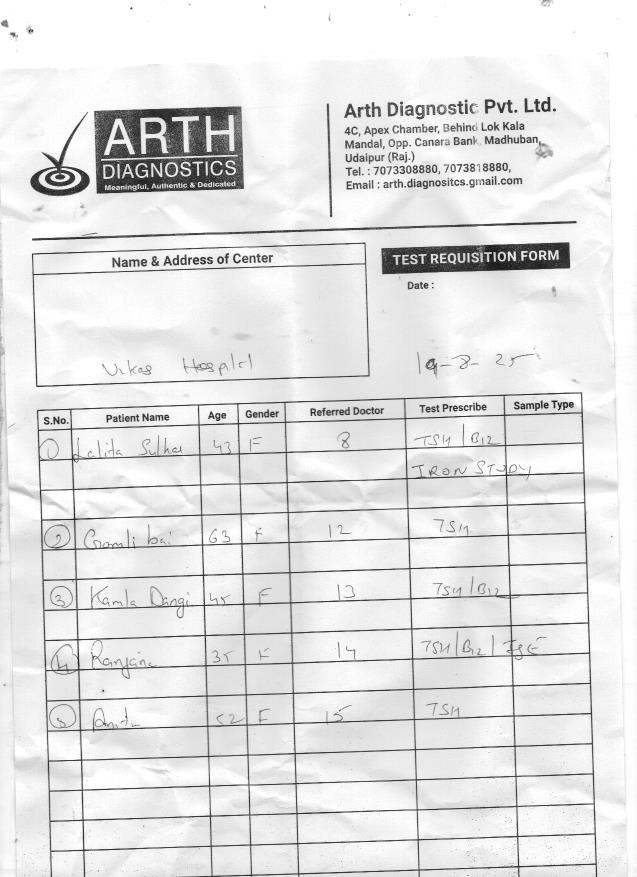 ARTH
DIAGNOSTICS
Meaningful, Authentic & Dedicated
Arth Diagnostic Pvt. Ltd.
4C, Apex Chamber, Behind Lok Kala
Mandal, Opp. Canara Bank, Madhuban,
Udaipur (Raj.)
Tel. : 7073308880, 7073818880,
Email : arth.diagnositcs.gmail.com
Name & Address of Center
Vikas Hospital
TEST REQUISITION FORM
Date :
19-8-25
S.No. Patient Name Age Gender Referred Doctor Test Prescribe Sample Type
1 Lalita Sulhar 43 F 8 TSH/B12
IRON STUDY
2 Gomli bai 63 F 12 TSH
3 Kamla Dangi 45 F 13 TSH/B12
4 Ranjana 35 F 14 TSH/B12/IgE
5 Anita 52 F 15 TSH